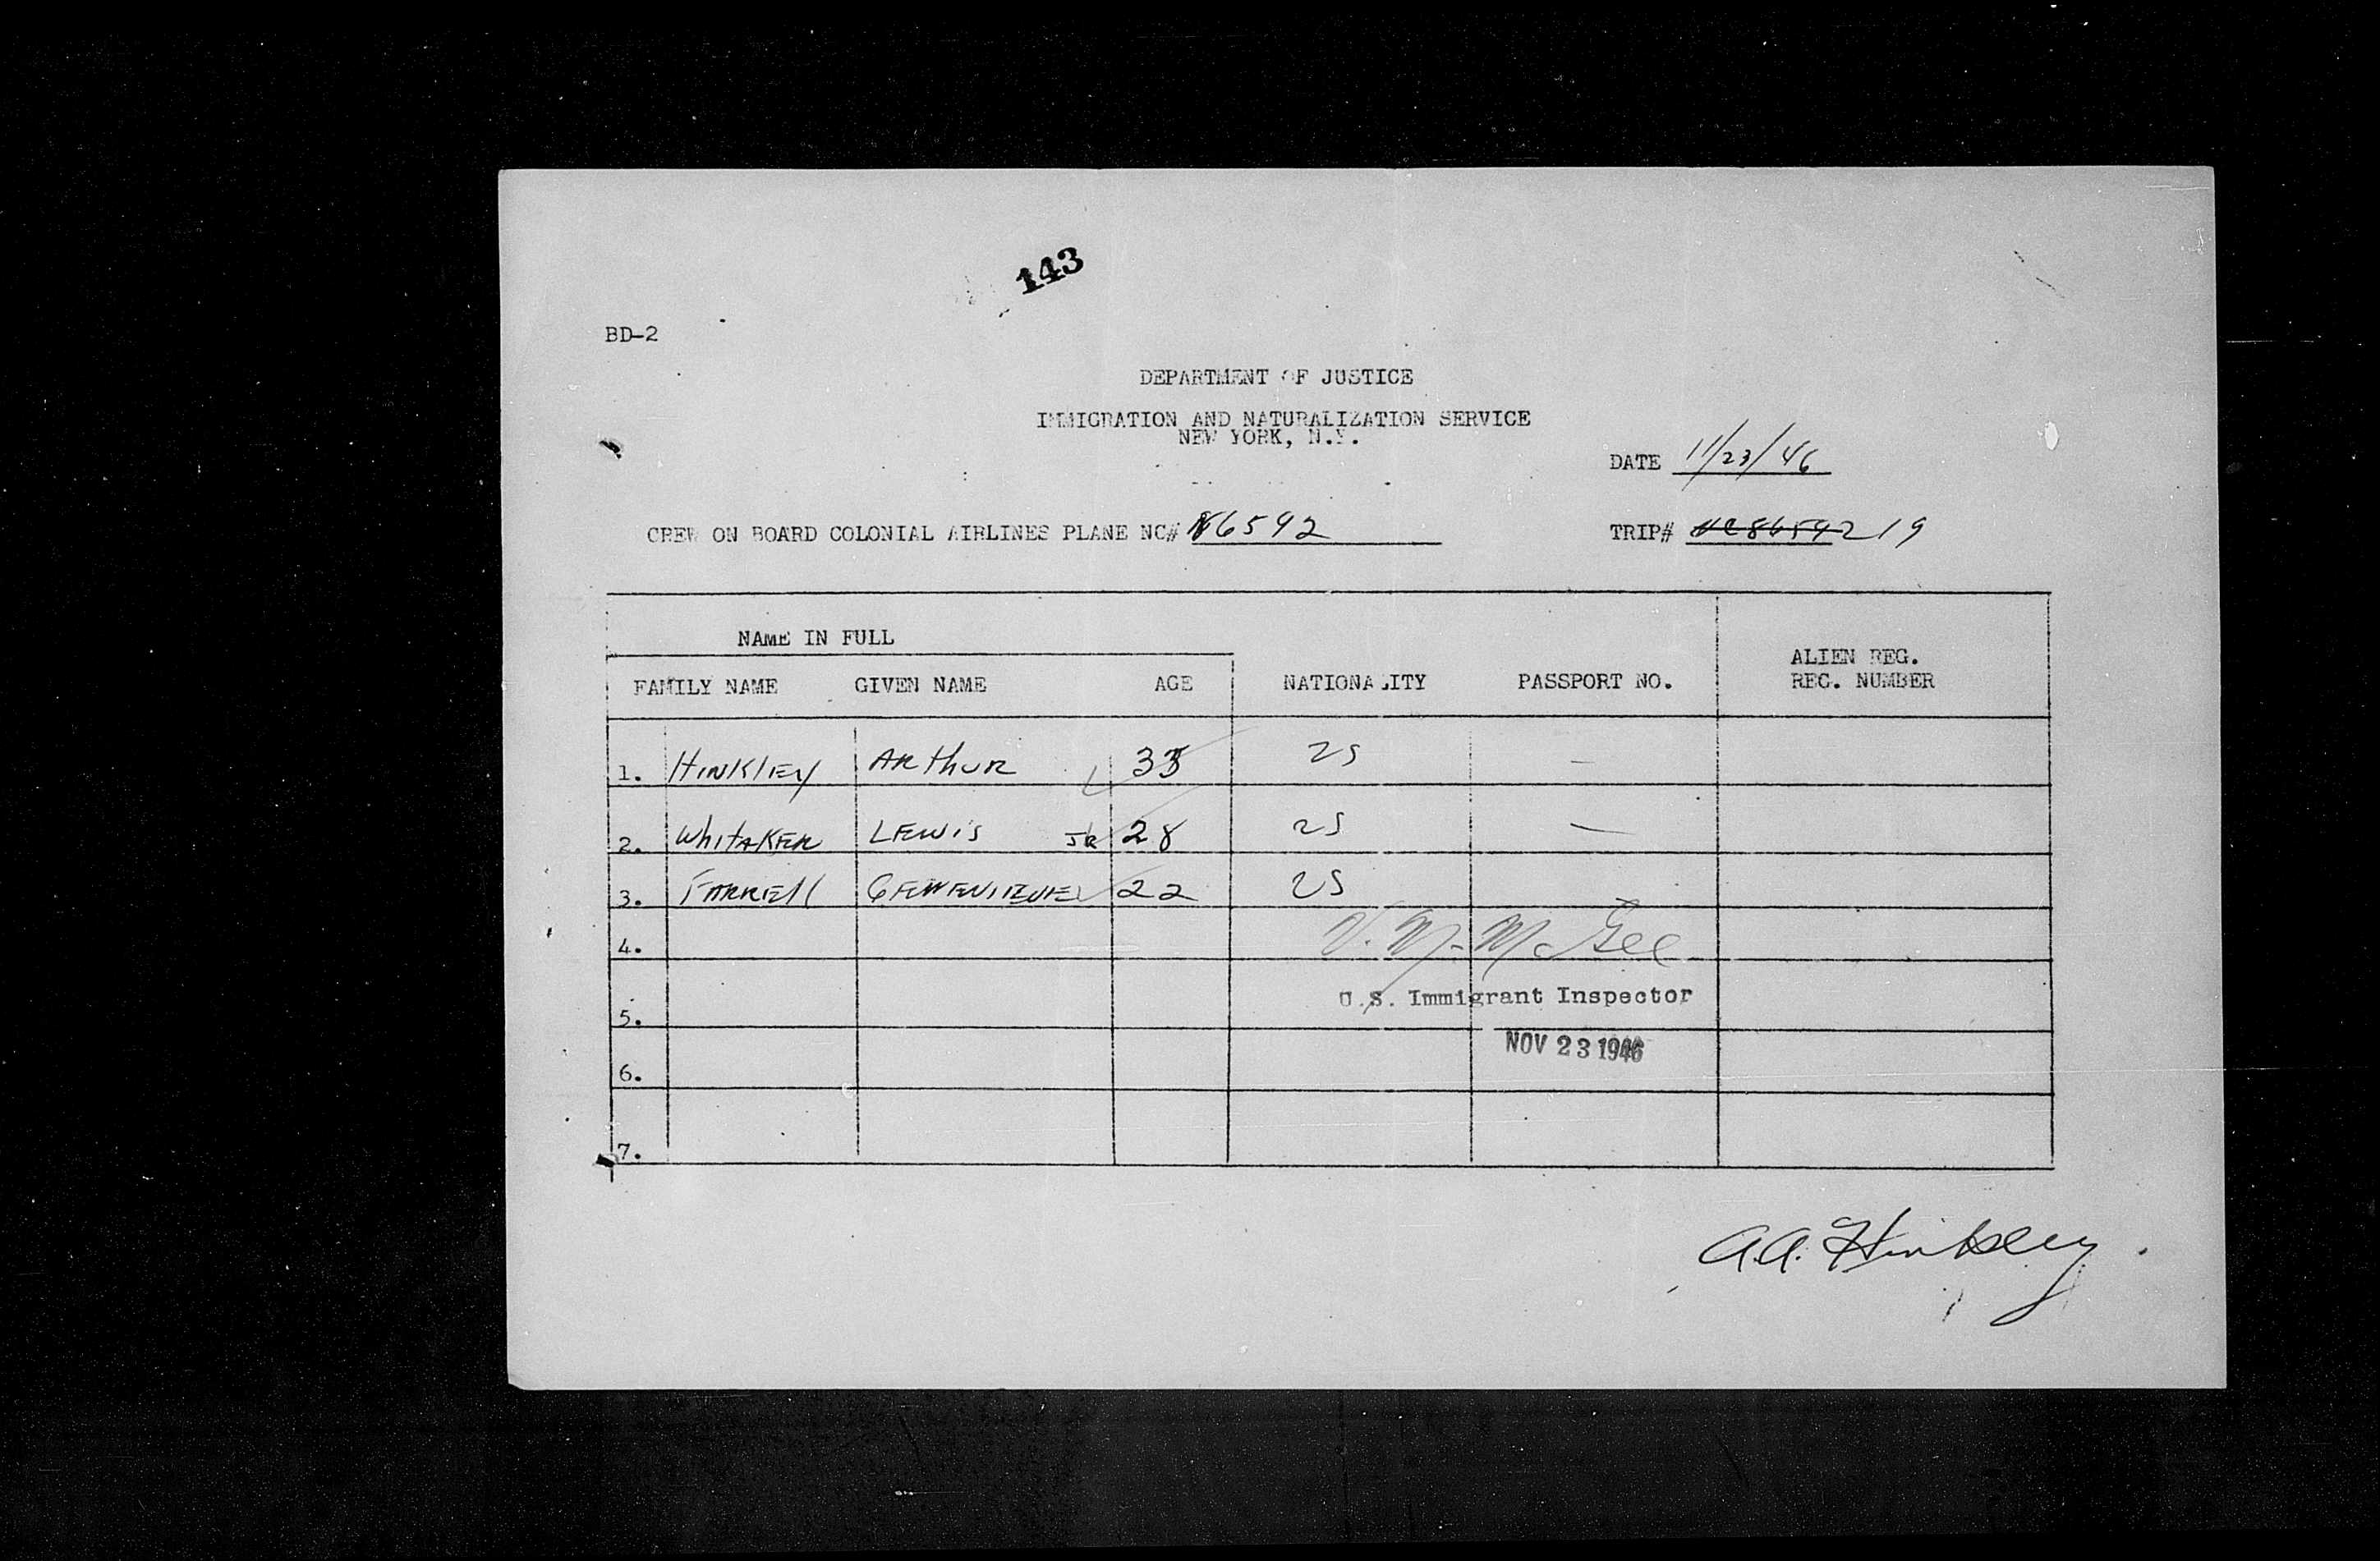 143
BD-2
DEPARTMENT OF JUSTICE
IMMIGRATION AND NATURALIZATION SERVICE
NEW YORK, N.Y.
DATE 11/23/46
CREW ON BOARD COLONIAL AIRLINES PLANE NC# 86592
TRIP# NC86592 19
NAME IN FULL
FAMILY NAME GIVEN NAME AGE NATIONALITY PASSPORT NO. ALIEN REG. REG. NUMBER
1. HINKLEY ARTHUR 33 US —
2. WHITAKER LEWIS JR 28 US —
3. FARRELL 22 US
4. V. M. McGee
5. U.S. Immigrant Inspector
6. NOV 23 1946
7.
A.A. Hinkley